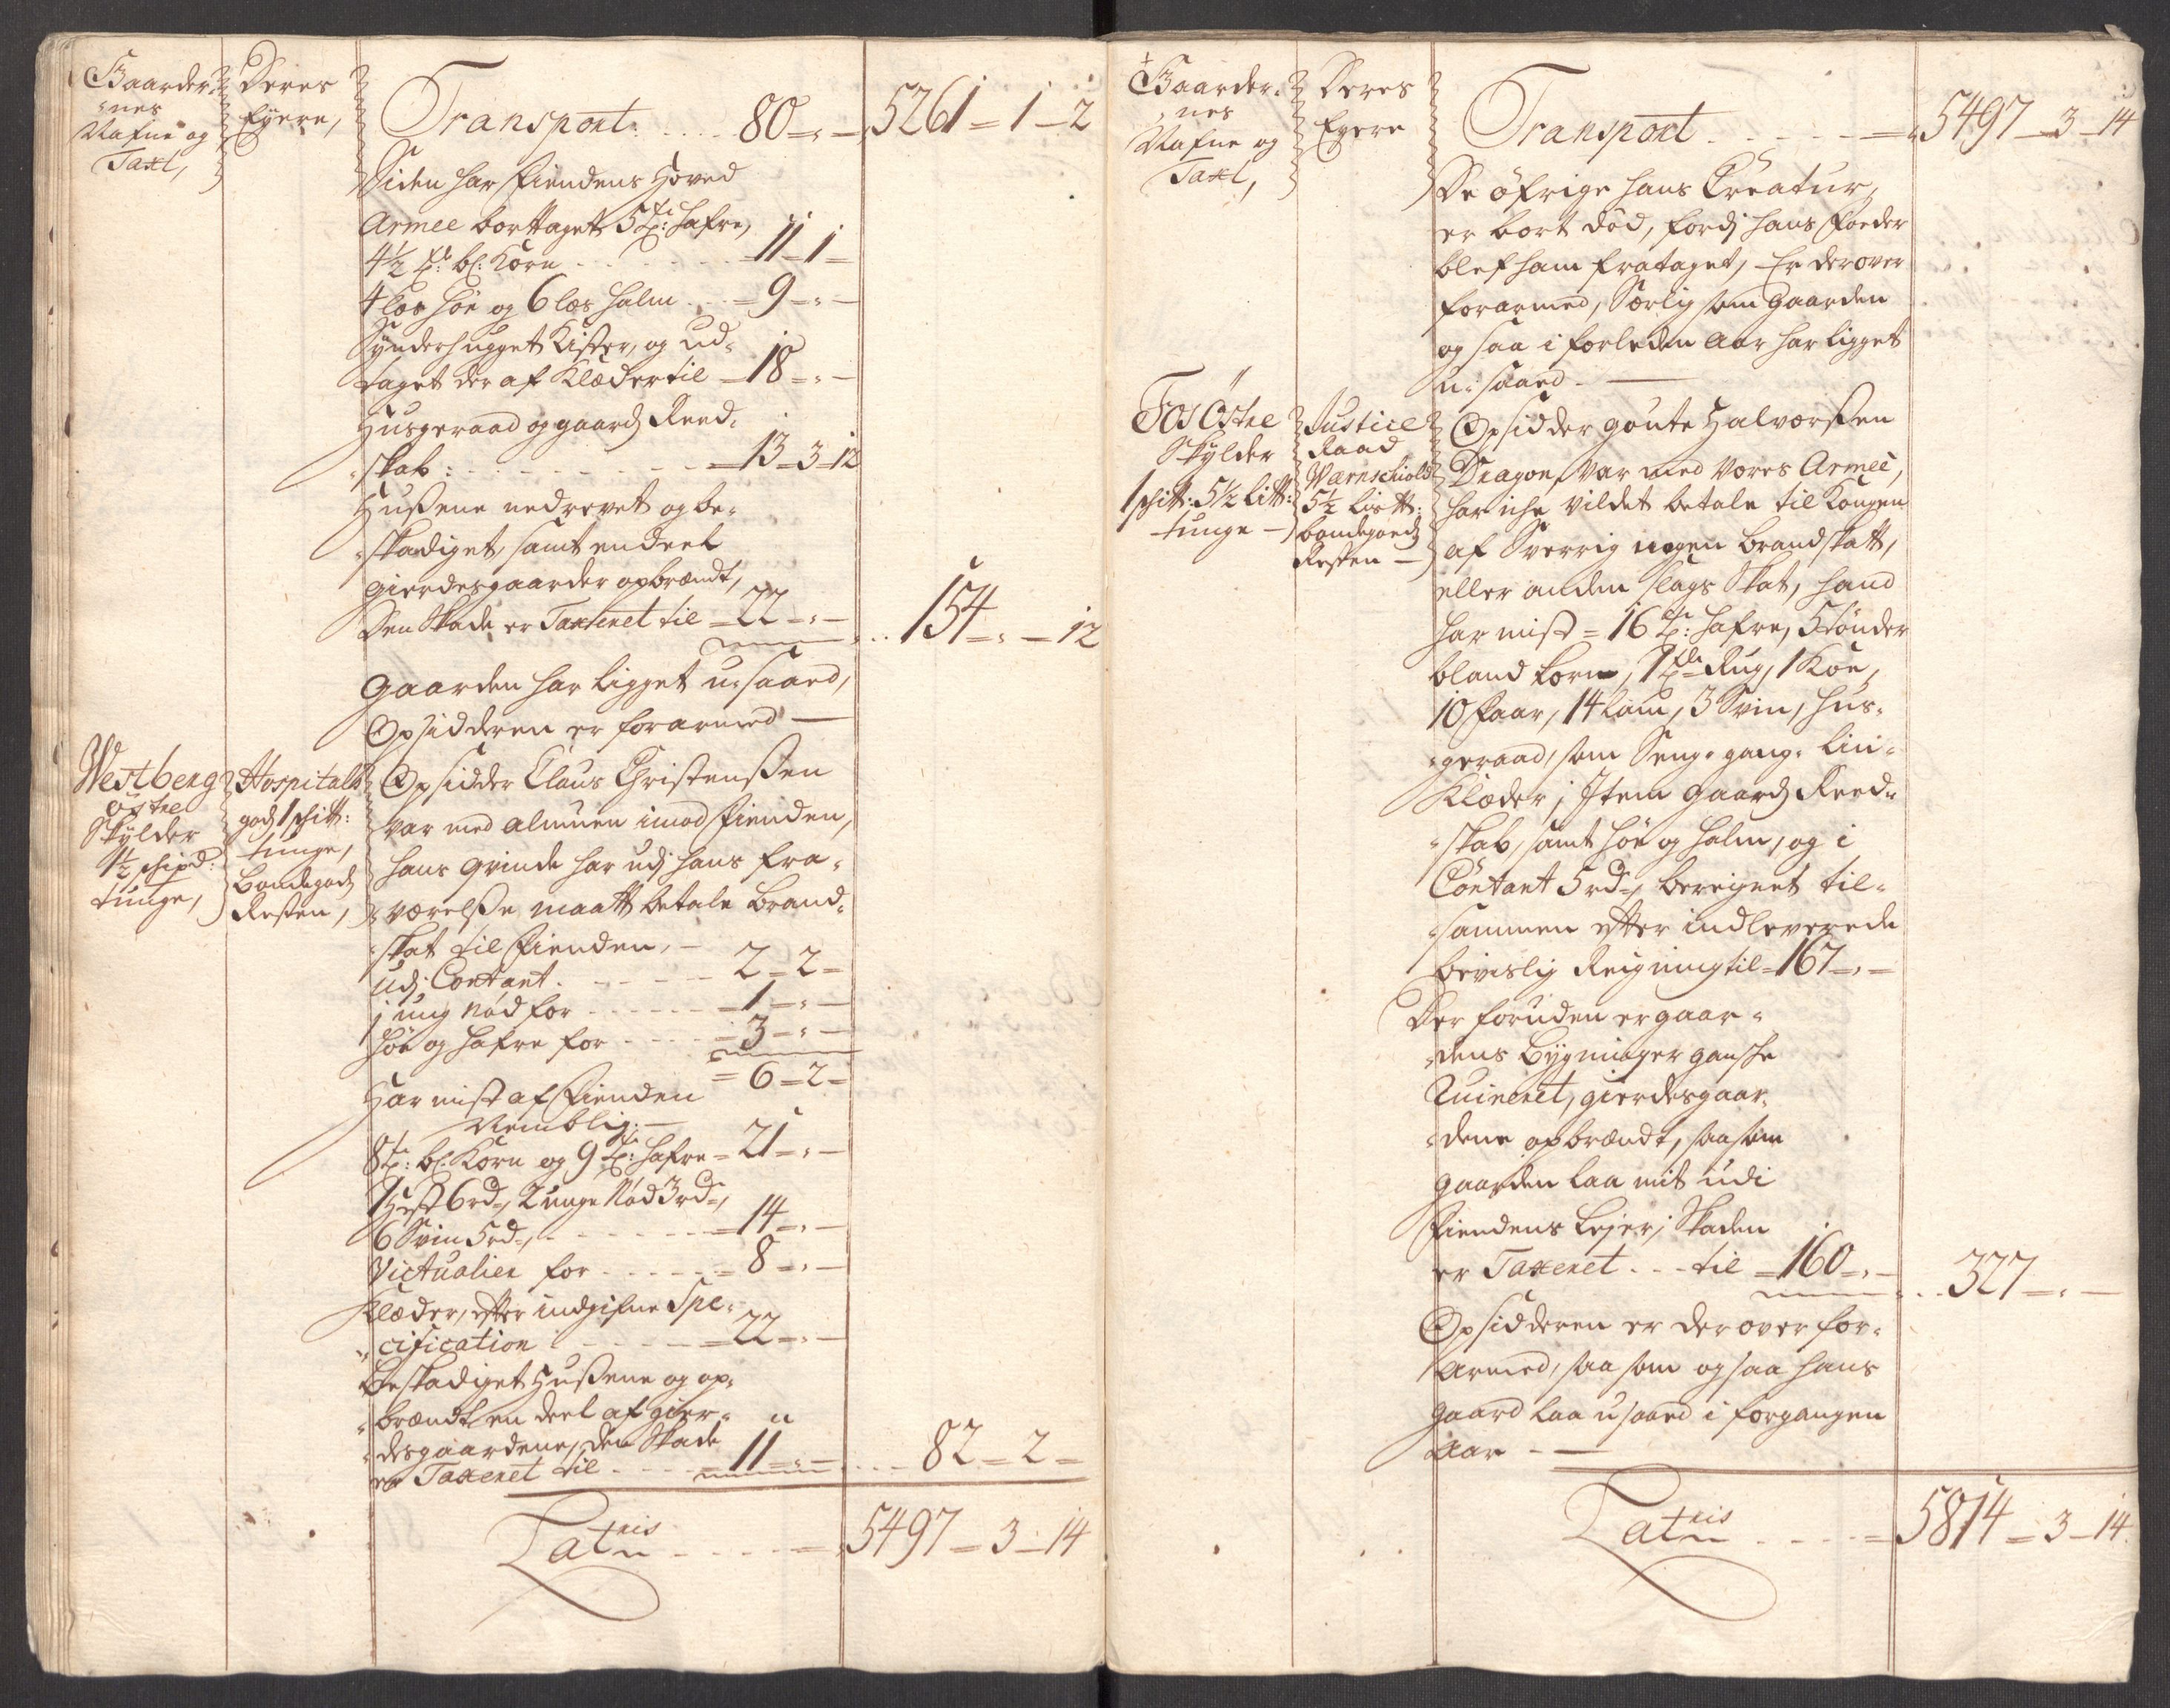 Gaarder-
nes
Nafne og
Taxt,
Deres
Eyere,
Transport: . . . . 80 - " - 5261 - 1 - 2
Siden har Fiendens Hoved
Armee borttaget 5 tr: hafre,
4½ tr: bl: Korn . . . . . . 11 - 1 -
4 læs høe og 6 læs halm . . . 9 - " -
Sønderhugget Kister, og ud-
taget der af Klæder til - 18 - " -
Husgeraad og gaards Reed-
skab: . . . . . . . . 13 - 3 - 12
Hußene nedrevet og be-
skadiget, samt en deel
gierdesgaarder opbrændt,
den Skade er Taxeret til - 22 - " - . . 154 - " - 12
Gaarden har ligget u-saaed,
Opsidderen er forarmed —
Westberg
östre
Skylder
1½ schipd:
tunge,
Hospitals
gods 1 schitt:
tunge,
Bondegods
Resten,
Opsidder Claus Christenßen
var med almuen imod Fienden,
hans qvinde har udj hans fra-
værelße maatt betale Brand-
skat til Fienden, -
udj Contant . . . . . . 2 - 2 -
1 ung Nød for . . . . . . 1 - " -
høe og hafre for . . . . . 3 - " -
= 6 - 2 -
Har mist af Fienden
Nemblig: —
8 tr: bl: Korn og 9 tr: hafre - 21 - " -
1 Hest 6 rd, 2 unge Nød 3 rd,
6 Sviin 5 rd, . . . . . . 14 - " -
Victualier for . . . . . . 8 - " -
Klæder, efter indgifne Spe-
cification . . . . . . 22 - " -
Beskadiget Hußene og op-
brændt en deel af gier-
desgaardene, den Skade
er Taxeret til . . . . 11 - " - . . . 82 - 2 -
Lateris . . . . . 5497 - 3 - 14
Gaarder-
nes
Nafne og
Taxt,
Deres
Eyere
Transport . . . . . 5497 - 3 - 14
De øfrige hans Creatur,
er bort død, fordj hans foeder
blef ham frataget, Er derover
forarmed, særlig som Gaarden
og saa i forleden Aar har ligget
u-saaed —
Fos Östre
Skylder
1 schitt: 5½ litt:
tunge -
Justice
Raad
Wærnschiold
5½ lis℔:
bondegoeds
Resten -
Opsidder Goute Halvorßen
Dragon, var med Vores Armeé,
har iche vildet betale til Kongen
af Sverrig nogen Brandskatt,
eller anden slags Skat, hand
har mist = 16 tr: hafre, 5 tønder
bland korn, 1 td Rug, 1 Koe,
10 Faar, 14 Lam, 3 Svin, hus-
geraad, som Seng- gang- lin-
Klæder, Item Gaards Reed-
skab, samt høe og halm, og i
Contant 5 rd, bereignet til-
sammen efter indleverede
bevislig Reigning til - 167 - " -
Der foruden er gaar-
dens Bygninger gansche
Ruineret, gierdesgaar-
dene opbrændt, saa som
gaarden laa mit udi
Fiendens Lejer; Skaden
er Taxeret . . . til - 160 - " - . . 327 - " -
Opsidderen er derover for-
armed, saa som og saa hans
gaard laa usaaed i forgangen
Aar - —
Lateris . . . . 5814 - 3 - 14